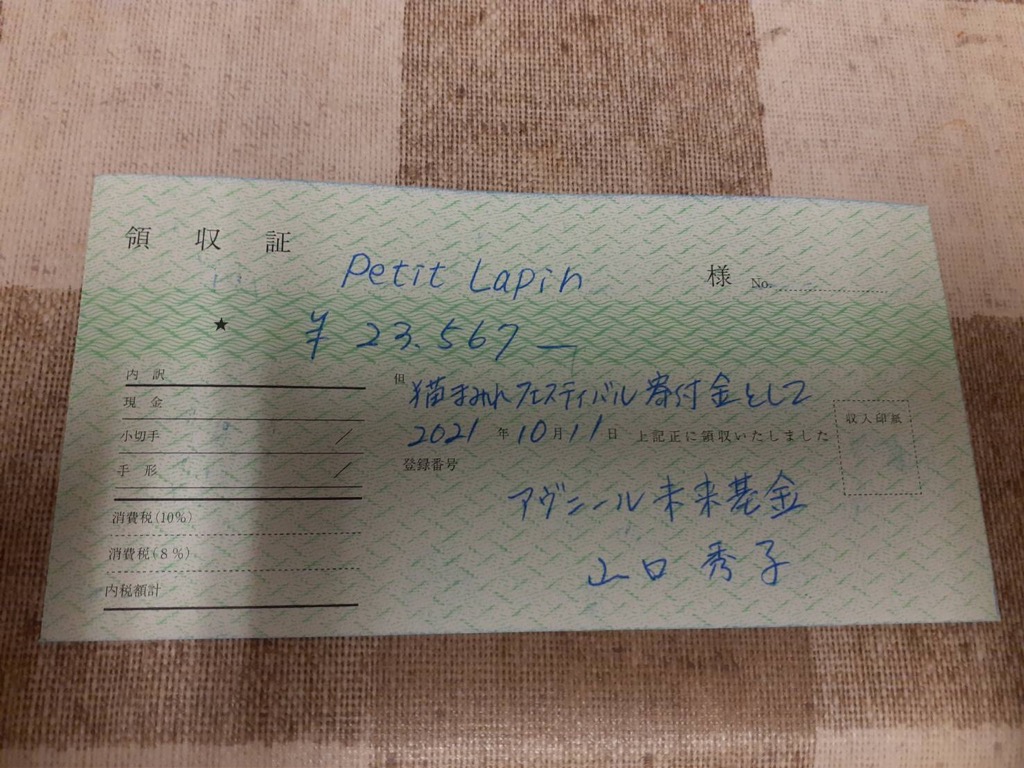 領 収 証
Petit Lapin 様 No.
★ ¥ 23.567 —
但 猫まみれフェスティバル寄付金として
2021 年 10 月 11 日 上記正に領収いたしました
登録番号
収入印紙
アヴニール未来基金
山口 秀子
内 訳
現 金
小切手 /
手 形 /
消費税(10%)
消費税(8%)
内税額計